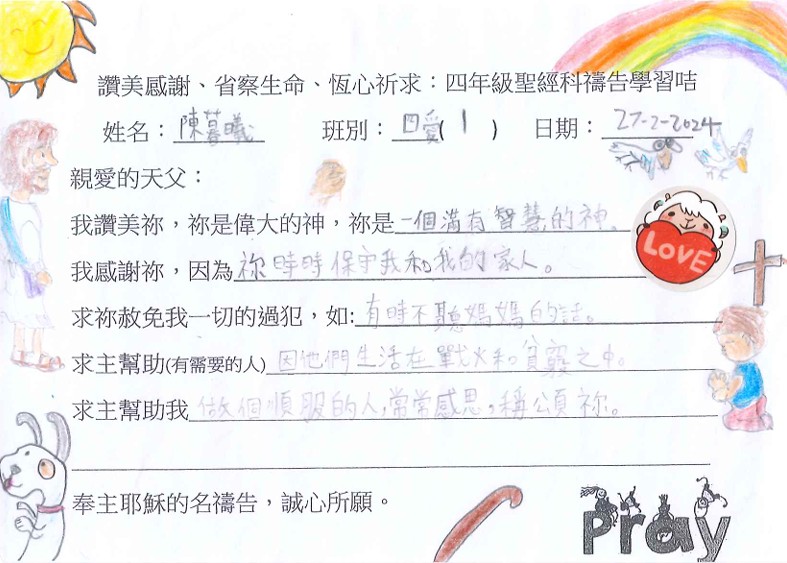 讚美感謝、省察生命、恆心祈求：四年級聖經科禱告學習咭
姓名：陳暮曦 班別：四愛( 1 ) 日期：27-2-2024
親愛的天父：
我讚美祢，祢是偉大的神，祢是一個滿有智慧的神。
我感謝祢，因為祢時時保守我和我的家人。
求祢赦免我一切的過犯，如:有時不聽媽媽的話。
求主幫助(有需要的人)因他們生活在戰火和貧窮之中。
求主幫助我做個順服的人,常常感恩,稱頌祢。
奉主耶穌的名禱告，誠心所願。
LOVE
Pray